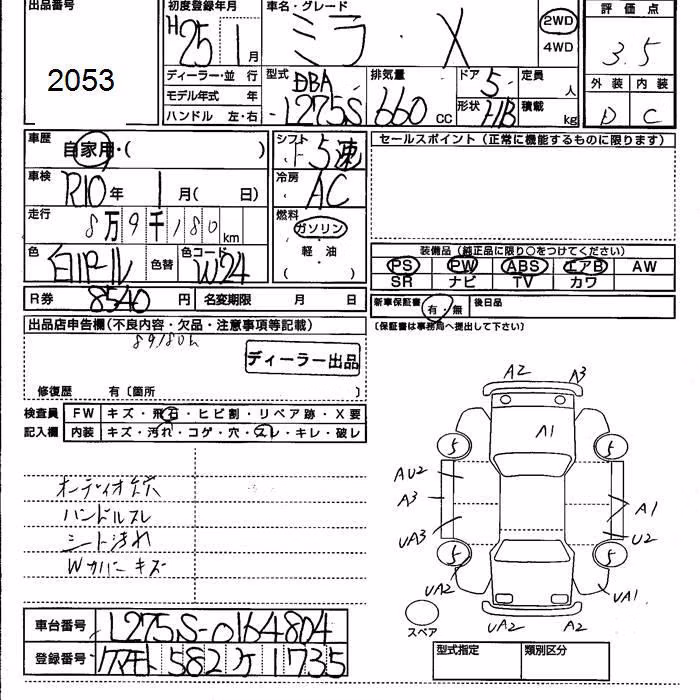 出品番号
2053
初度登録年月
H25 1月
車名・グレード
ミラ X
2WD
4WD
評価点
3.5
外装 内装
D C
ディーラー・並行
モデル年式 年
ハンドル 左・右
型式
DBA
L275S
排気量
660 CC
ドア 5
形状 HB
定員 人
積載 kg
車歴
自家用・( )
車検
R10年 1月( 日)
走行
8万9千180km
色
白パール
色替
色コード
W24
シフト
F5速
冷房
AC
燃料
ガソリン
軽・油
( )
セールスポイント (正常に機能するものに限ります)
装備品 (純正品に限り○をつけてください)
PS PW ABS エアB AW
SR ナビ TV カワ
R券 8540円 名変期限 月 日
新車保証書 有・無 後日品
(保証書は事務局へ提出して下さい)
出品店申告欄(不良内容・欠品・注意事項等記載)
89180k
ディーラー出品
修復歴 有〔箇所 〕
検査員 FW キズ・飛石・ヒビ割・リペア跡・X要
記入欄 内装 キズ・汚れ・コゲ・穴・スレ・キレ・破レ
オーディオ欠穴
ハンドルスレ
シート汚れ
Wカバーキズ
A2 A3
A1
5 5
AU2
A3 A1
UA3 U2
5 5
UA2 UA1
スペア
UA2 A2
車台番号 L275S-0164804
登録番号 クマモト582ケ1735
型式指定 類別区分